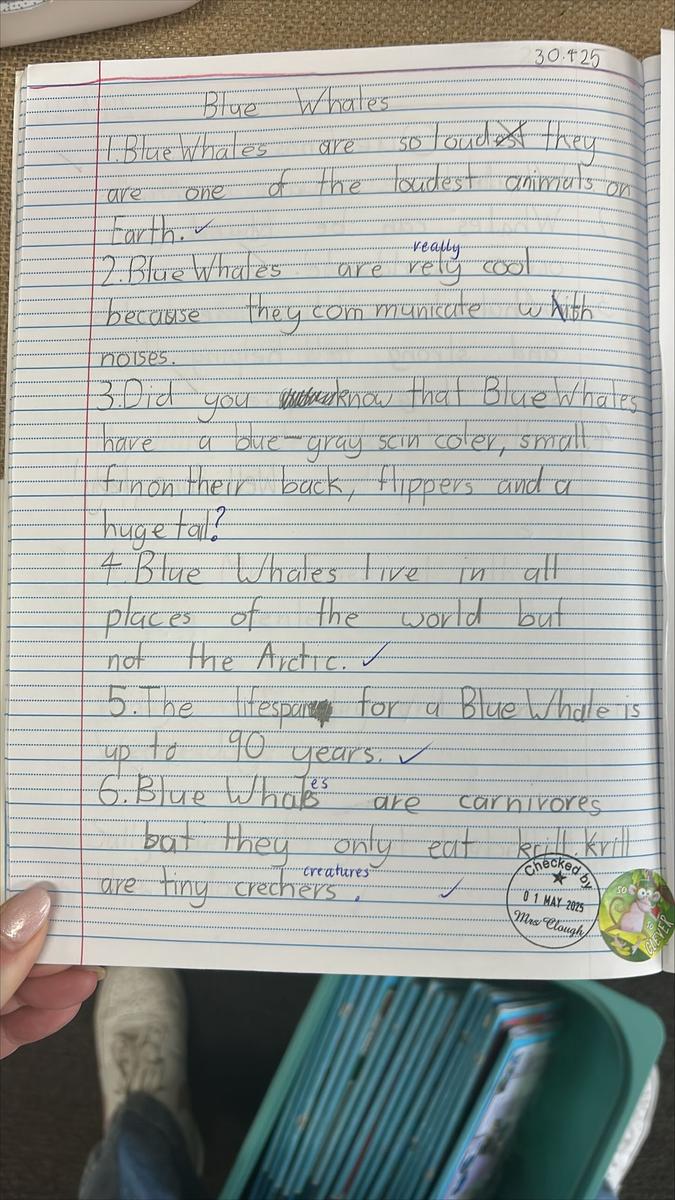 30.4.25
Blue Whales
1. Blue Whales are so loud they
are one of the loudest animals on
Earth. ✓
really
2. Blue Whales are rely cool
because they com municate with
noises.
3. Did you know that Blue Whales
have a blue-gray scin coler, small
fin on their back, flippers and a
huge tal?
4. Blue Whales live in all
places of the world but
not the Arctic. ✓
5. The lifespan for a Blue Whale is
up to 90 years. ✓
es
6. Blue Whales are carnivores
bat they only eat krill. krill
creatures
are tiny crechers. ✓
Checked by
01 MAY 2025
Mrs Clough
SO
CLEVER